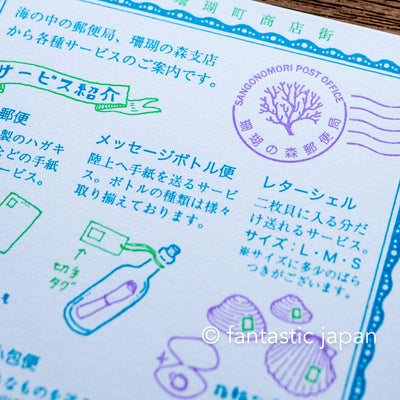 珊瑚町商店街
海の中の郵便局、珊瑚の森支店
から各種サービスのご案内です。
サービス紹介
SANGONOMORI POST OFFICE
珊瑚の森郵便局
郵便
製のハガキ
などの手紙
ービス。
メッセージボトル便
陸上へ手紙を送るサービ
ス。ボトルの種類は様々
取り揃えております。
切手
タグ
レターシェル
二枚貝に入る分だ
け送れるサービス。
サイズ：L・M・S
※サイズに多少のばら
つきがございます。
© fantastic japan
小包便